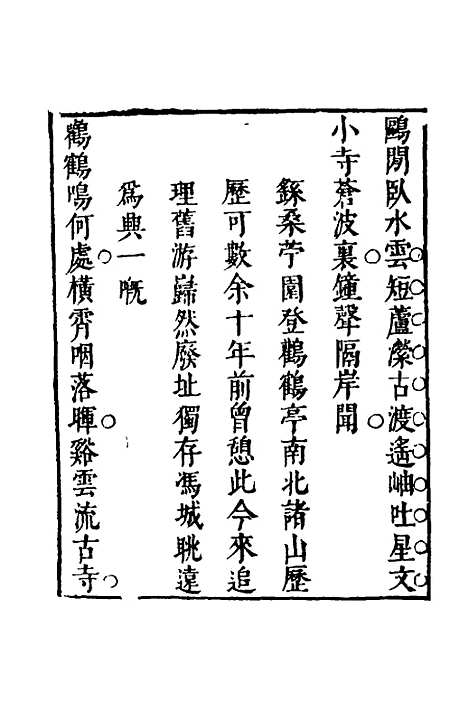 鷗閒臥水雲短蘆縈古渡遙岫吐星文
小寺蒼波裏鐘聲隔岸聞
錄桑苧園登鸛鶴亭南北諸山歷
歷可數余十年前曾憩此今來追
理舊游巋然廢址獨存馮城眺遠
為興一嘅
鸛鶴鳴何處橫霄咽落暉谿雲流古寺